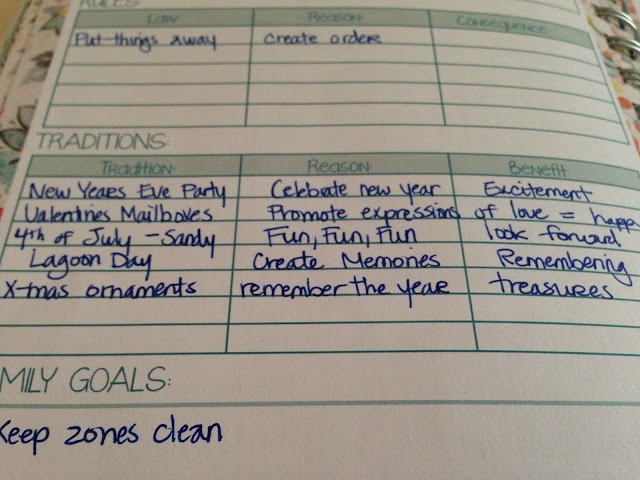 RULES:
Law Reason Consequence
Put things away Create order
TRADITIONS:
Tradition Reason Benefit
New Years Eve Party Celebrate new year Excitement
Valentines Mailboxes Promote expressions of love = happ
4th of July - Sandy Fun, Fun, Fun look forward
Lagoon Day Create Memories Remembering
X-mas ornaments remember the year treasures
MILY GOALS:
Keep zones clean